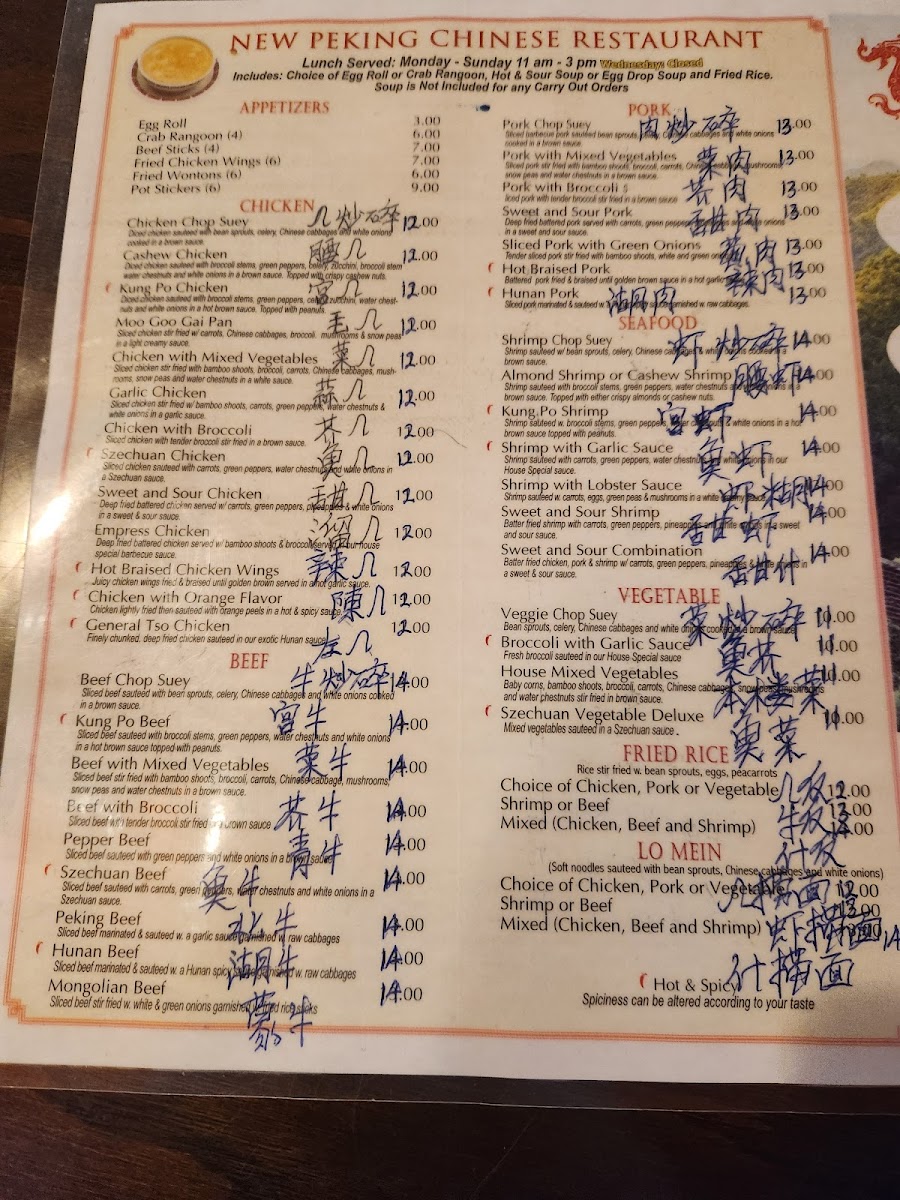 NEW PEKING CHINESE RESTAURANT
Lunch Served: Monday - Sunday 11 am - 3 pm Wednesday: Closed
Includes: Choice of Egg Roll or Crab Rangoon, Hot & Sour Soup or Egg Drop Soup and Fried Rice.
Soup is Not Included for any Carry Out Orders
APPETIZERS
Egg Roll 3.00
Crab Rangoon (4) 6.00
Beef Sticks (4) 7.00
Fried Chicken Wings (6) 7.00
Fried Wontons (6) 6.00
Pot Stickers (6) 9.00
CHICKEN
Chicken Chop Suey 几炒碎 12.00
Diced chicken sauteed with bean sprouts, celery, Chinese cabbages and white onions
cooked in a brown sauce.
Cashew Chicken 腰几 12.00
Diced chicken sauteed with broccoli stems, green peppers, celery, zucchini, broccoli stem
water chestnuts and white onions in a brown sauce. Topped with crispy cashew nuts.
Kung Po Chicken 宫几 12.00
Diced chicken sauteed with broccoli stems, green peppers, celery, zucchini, water chest-
nuts and white onions in a hot brown sauce. Topped with peanuts.
Moo Goo Gai Pan 毛几 12.00
Sliced chicken stir fried w/ carrots, Chinese cabbages, broccoli. mushrooms & snow peas
in a light creamy sauce.
Chicken with Mixed Vegetables 菜几 12.00
Sliced chicken stir fried with bamboo shoots, broccoli, carrots, Chinese cabbages, mush-
rooms, snow peas and water chestnuts in a white sauce.
Garlic Chicken 蒜几 12.00
Sliced chicken stir fried w/ bamboo shoots, carrots, green peppers, water chestnuts &
white onions in a garlic sauce.
Chicken with Broccoli 芥几 12.00
Sliced chicken with tender broccoli stir fried in a brown sauce.
Szechuan Chicken 魚几 12.00
Sliced chicken sauteed with carrots, green peppers, water chestnuts and white onions in
a Szechuan sauce.
Sweet and Sour Chicken 甜几 12.00
Deep fried battered chicken served w/ carrots, green peppers, pineapples & white onions
in a sweet & sour sauce.
Empress Chicken 溜几 12.00
Deep fried battered chicken served w/ bamboo shoots & broccoli served in our house
special barbecue sauce.
Hot Braised Chicken Wings 辣几 12.00
Juicy chicken wings fried & braised until golden brown served in a hot garlic sauce.
Chicken with Orange Flavor 陳几 12.00
Chicken lightly fried then sauteed with orange peels in a hot & spicy sauce.
General Tso Chicken 左几 12.00
Finely chunked, deep fried chicken sauteed in our exotic Hunan sauce.
BEEF
Beef Chop Suey 牛炒碎 14.00
Sliced beef sauteed with bean sprouts, celery, Chinese cabbages and white onions cooked
in a brown sauce.
Kung Po Beef 宫牛 14.00
Sliced beef sauteed with broccoli stems, green peppers, water chestnuts and white onions
in a hot brown sauce topped with peanuts.
Beef with Mixed Vegetables 菜牛 14.00
Sliced beef stir fried with bamboo shoots, broccoli, carrots, Chinese cabbage, mushrooms,
snow peas and water chestnuts in a brown sauce.
Beef with Broccoli 芥牛 14.00
Sliced beef with tender broccoli stir fried in a brown sauce
Pepper Beef 青牛 14.00
Sliced beef sauteed with green peppers and white onions in a brown sauce
Szechuan Beef 魚牛 14.00
Sliced beef sauteed with carrots, green peppers, water chestnuts and white onions in a
Szechuan sauce.
Peking Beef 北牛 14.00
Sliced beef marinated & sauteed w. a garlic sauce garnished w. raw cabbages
Hunan Beef 湖牛 14.00
Sliced beef marinated & sauteed w. a Hunan spicy sauce garnished w. raw cabbages
Mongolian Beef 蒙牛 14.00
Sliced beef stir fried w. white & green onions garnished w. fried rice sticks
PORK
Pork Chop Suey 肉炒碎 13.00
Sliced barbecue pork sauteed bean sprouts, celery, Chinese cabbages and white onions
cooked in a brown sauce.
Pork with Mixed Vegetables 菜肉 13.00
Sliced pork stir fried with bamboo shoots, broccoli, carrots, Chinese cabbage, mushrooms,
snow peas and water chestnuts in a brown sauce.
Pork with Broccoli 芥肉 13.00
Sliced pork with tender broccoli stir fried in a brown sauce
Sweet and Sour Pork 甜肉 13.00
Deep fried battered pork served with carrots, green peppers, pineapples and white onions
in a sweet and sour sauce.
Sliced Pork with Green Onions 肉 13.00
Tender sliced pork stir fried with bamboo shoots, white and green onions
Hot Braised Pork 辣肉 13.00
Battered pork fried & braised until golden brown served in a hot garlic sauce
Hunan Pork 湖肉 13.00
Sliced pork marinated & sauteed w. garnished w. raw cabbages.
SEAFOOD
Shrimp Chop Suey 虾炒碎 14.00
Shrimp sauteed w/ bean sprouts, celery, Chinese cabbages & white onions cooked in a
brown sauce.
Almond Shrimp or Cashew Shrimp 腰虾 14.00
Shrimp sauteed with broccoli stems, green peppers, water chestnuts and white onions in a
brown sauce. Topped with either crispy almonds or cashew nuts.
Kung Po Shrimp 宫虾 14.00
Shrimp sauteed w. broccoli stems, green peppers, water chestnuts & white onions in a hot
brown sauce topped with peanuts.
Shrimp with Garlic Sauce 魚虾 14.00
Shrimp sauteed with carrots, green peppers, water chestnuts and white onions in our
House Special sauce.
Shrimp with Lobster Sauce 虾糊 14.00
Shrimp sauteed w. carrots, eggs, green peas & mushrooms in a white sauce.
Sweet and Sour Shrimp 甜虾 14.00
Batter fried shrimp with carrots, green peppers, pineapples and white onions in a sweet
and sour sauce.
Sweet and Sour Combination 甜什 14.00
Batter fried chicken, pork & shrimp w/ carrots, green peppers, pineapples & white onions in
a sweet & sour sauce.
VEGETABLE
Veggie Chop Suey 菜炒碎 11.00
Bean sprouts, celery, Chinese cabbages and white onions cooked in a brown sauce
Broccoli with Garlic Sauce 魚芥 11.00
Fresh broccoli sauteed in our House Special sauce
House Mixed Vegetables 本楼菜 11.00
Baby corns, bamboo shoots, broccoli, carrots, Chinese cabbage, snow peas, mushrooms
and water chestnuts stir fried in brown sauce.
Szechuan Vegetable Deluxe 魚菜 11.00
Mixed vegetables sauteed in a Szechuan sauce.
FRIED RICE
Rice stir fried w. bean sprouts, eggs, peacarrots
Choice of Chicken, Pork or Vegetable 几反 12.00
Shrimp or Beef 牛反 13.00
Mixed (Chicken, Beef and Shrimp) 什反 14.00
LO MEIN
(Soft noodles sauteed with bean sprouts, Chinese cabbages and white onions)
Choice of Chicken, Pork or Vegetable 几捞面 12.00
Shrimp or Beef 虾捞面 13.00
Mixed (Chicken, Beef and Shrimp) 什捞面 14
Hot & Spicy
Spiciness can be altered according to your taste